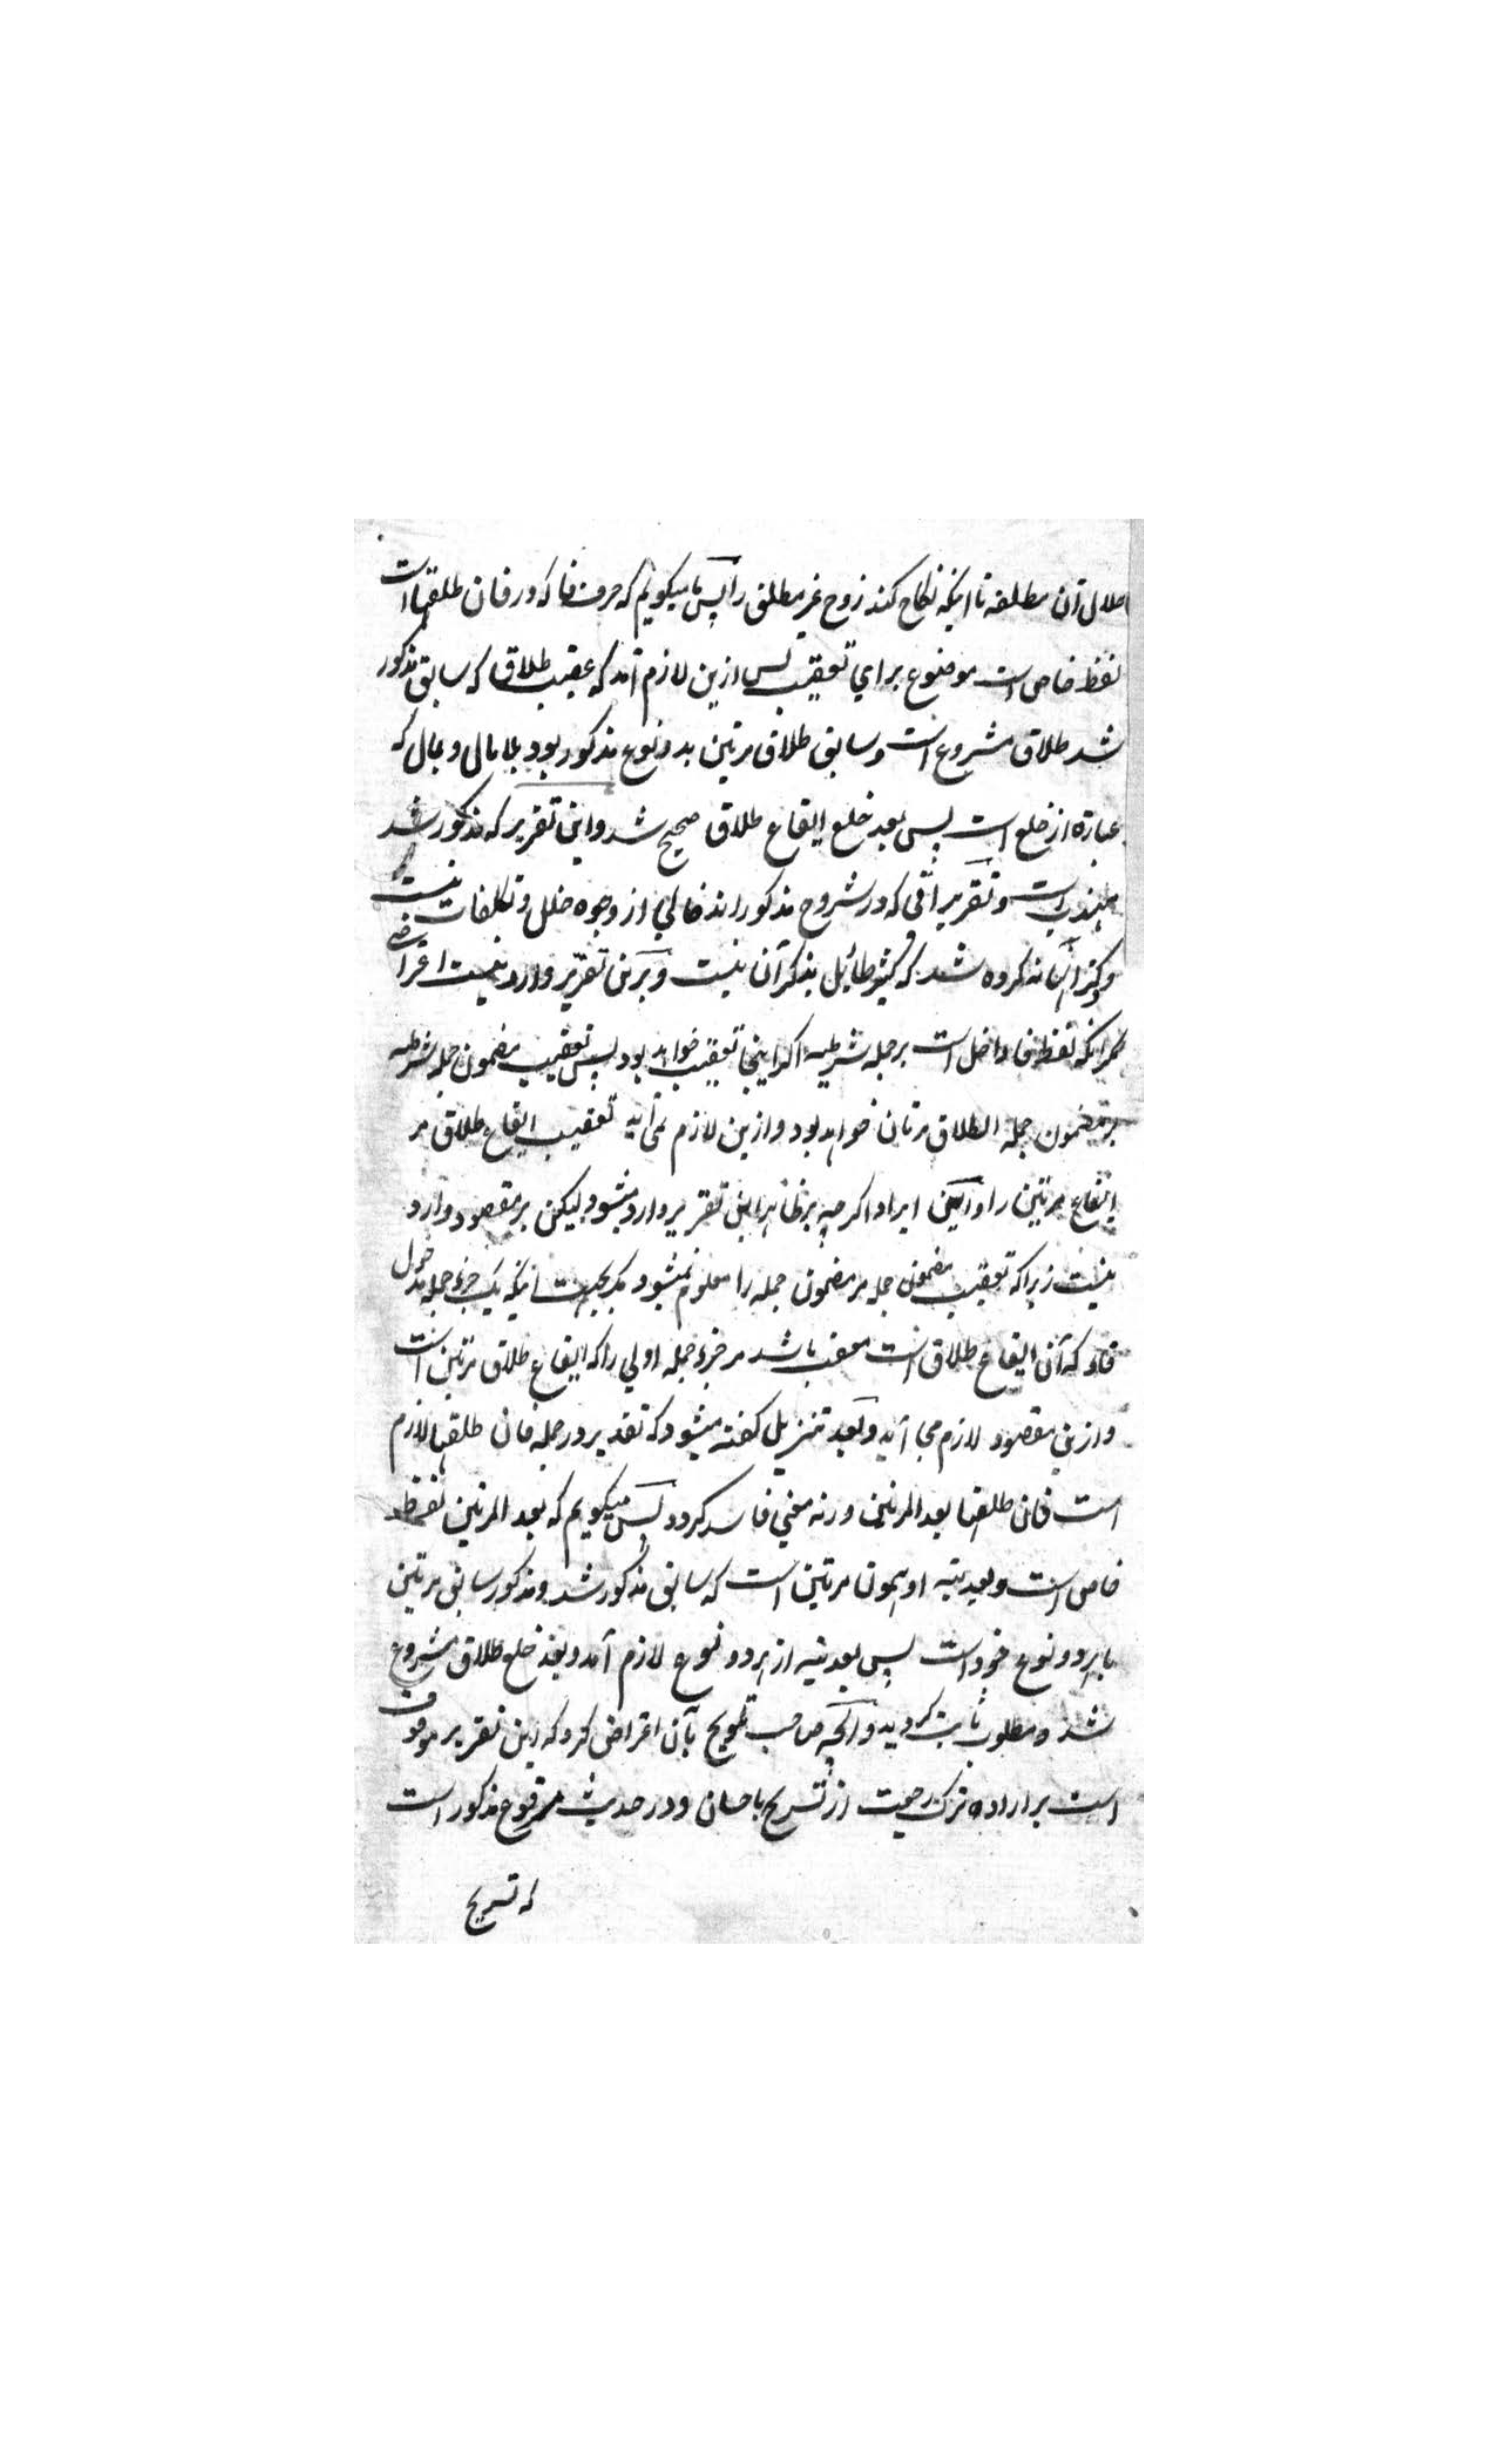 حلال آن مطلقه تا اینکه نکاح کند زوج غیر مطلق را پس ما میکویم که حرف فا که در فان طلقها است
لفظ خاص است موضوع برای تعقیب پس ازین لازم آمد که عقیب طلاق که سابق مذکور
شد طلاق مشروع است و سابق طلاق مرتین بدو نوع مذکور بود بلا مال و بمال که
عبارة از خلع است پس بعد خلع ایقاع طلاق صحیح شد و این تقریر که مذکور شد
مهذب است و تقریر اتی که در شروح مذکور اند خالی از وجوه خلل و تکلفات نیست
و ذکر آنها نه کرده شد که کثیر طائل بذکر آن نیست و برین تقریر وارد نیست اعتراضی
مکر انکه لفظ فا داخل است بر جمله شرطیه اکر اینجا تعقیب خواهد بود پس تعقیب مضمون جمله شرطیه
بر مضمون جمله الطلاق مرتان خواهد بود و ازین لازم نمی آید تعقیب ایقاع طلاق مر
ایقاع مرتین را و این ایراد اکرچه بر ظاهر این تقریر وارد میشود لیکن بر مقصود وارد
نیست زیراکه تعقیب مضمون جمله مر مضمون جمله را معلوم نمیشود مکر بجهت اینکه یک جزء جمله مدخول
فاء که آن ایقاع طلاق است معقب باشد مر جزء جمله اولی را که ایقاع طلاق مرتین است
و ازین مقصود لازم می آید و بعد تنزیل کفته میشود که تقدیر در جمله فان طلقها لازم
است فان طلقها بعد المرتین ورنه معنی فاسد کردد پس میکویم که بعد المرتین لفظ
خاص است و بعدیته او همون مرتین است که سابق مذکور شد و مذکور سابق مرتین
بهر دو نوع خود است پس بعدیته از هر دو نوع لازم آمد و بعد خلع طلاق مشروع
شد و مطلوب ثابت کردید و آنچه صاحب تلویح بآن اعتراض کرد که این تقریر موقوف
است بر اراده ترک رجعت از تسریح باحسان و در حدیث مرفوع مذکور است
که تسریح